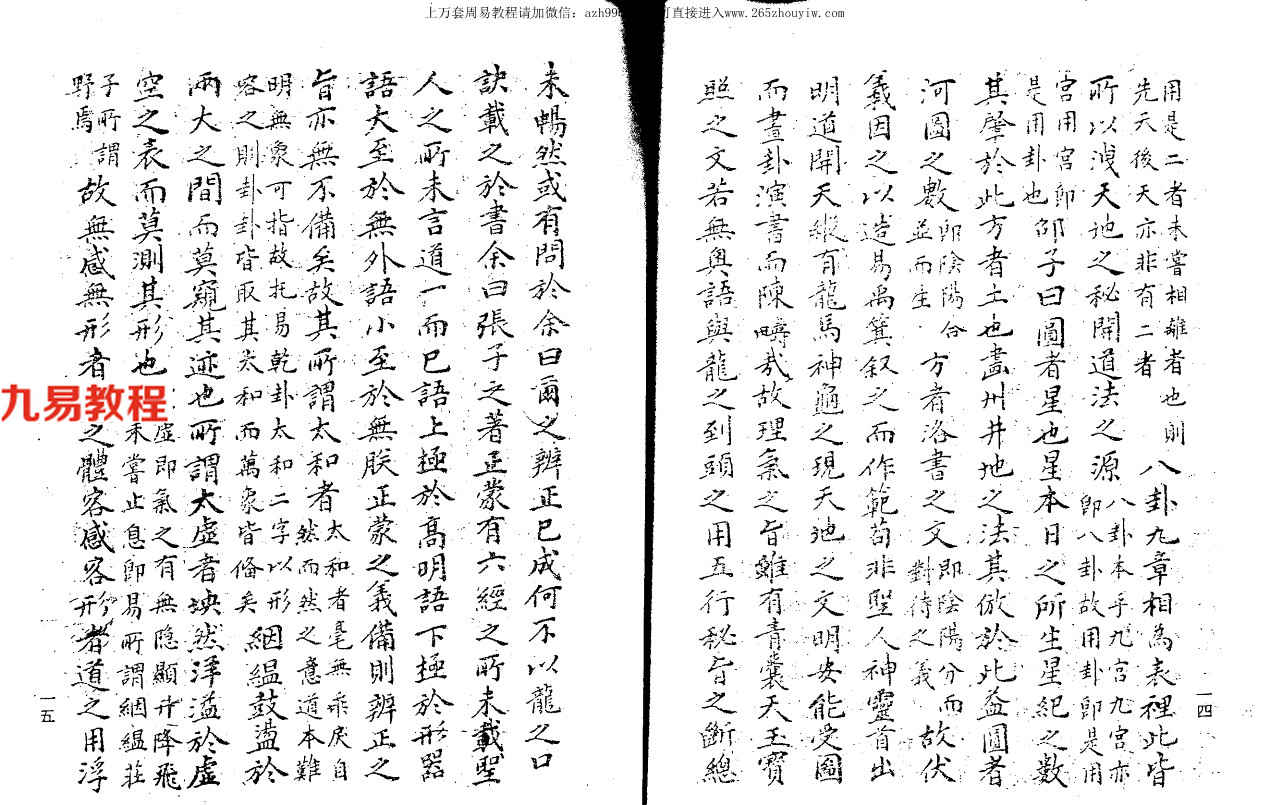 上万套周易教程请加微信：azh99
可直接进入www.265zhouyiw.com
用是二者未嘗相離者也則
先天後天亦非有二者
八卦九章相為表裡此皆
所以洩天地之秘開道法之源
八卦本乎九宮九宮亦
即八卦故用卦即是用
宮用宮即
是用卦也
邵子曰圓者星也星本日之所生星紀之數
其肇於此方者土也畫州井地之法其倣於此益圓者
河圖之數
即陰陽合
並而生
方者洛書之文
即陰陽分而
對待之義
故伏
羲因之以造易禹箕叙之而作範苟非聖人神靈首出
明道開天縱有龍馬神龜之現天地之文明安能受圖
而畫卦演書而陳疇哉故理氣之旨雖有青囊天玉寶
照之文若無奥語與龍之到頭之用五行秘旨之斷總
一四
未暢然或有問於余曰爾之辨正已成何不以龍之口
訣載之於書余曰張子之著正蒙有六經之所未載聖
人之所未言道一而已語上極於高明語下極於形器
語大至於無外語小至於無朕正蒙之義備則辨正之
旨亦無不備矣故其所謂太和者
太和者毫無乖戾自
然而然之意道本難
明無象可指故托易乾卦太和二字以形
容之則卦卦皆取其太和而萬象皆備矣
絪縕鼓盪於
兩大之間而莫窺其迹也所謂太虛者坱然浮溢於虛
空之表而莫測其形也
虛即氣之有無隐顯升降飛
未嘗止息即易所謂絪縕莊
子所謂
野焉
故無感無形者
之體客感客形者道之用浮
一五
九易教程